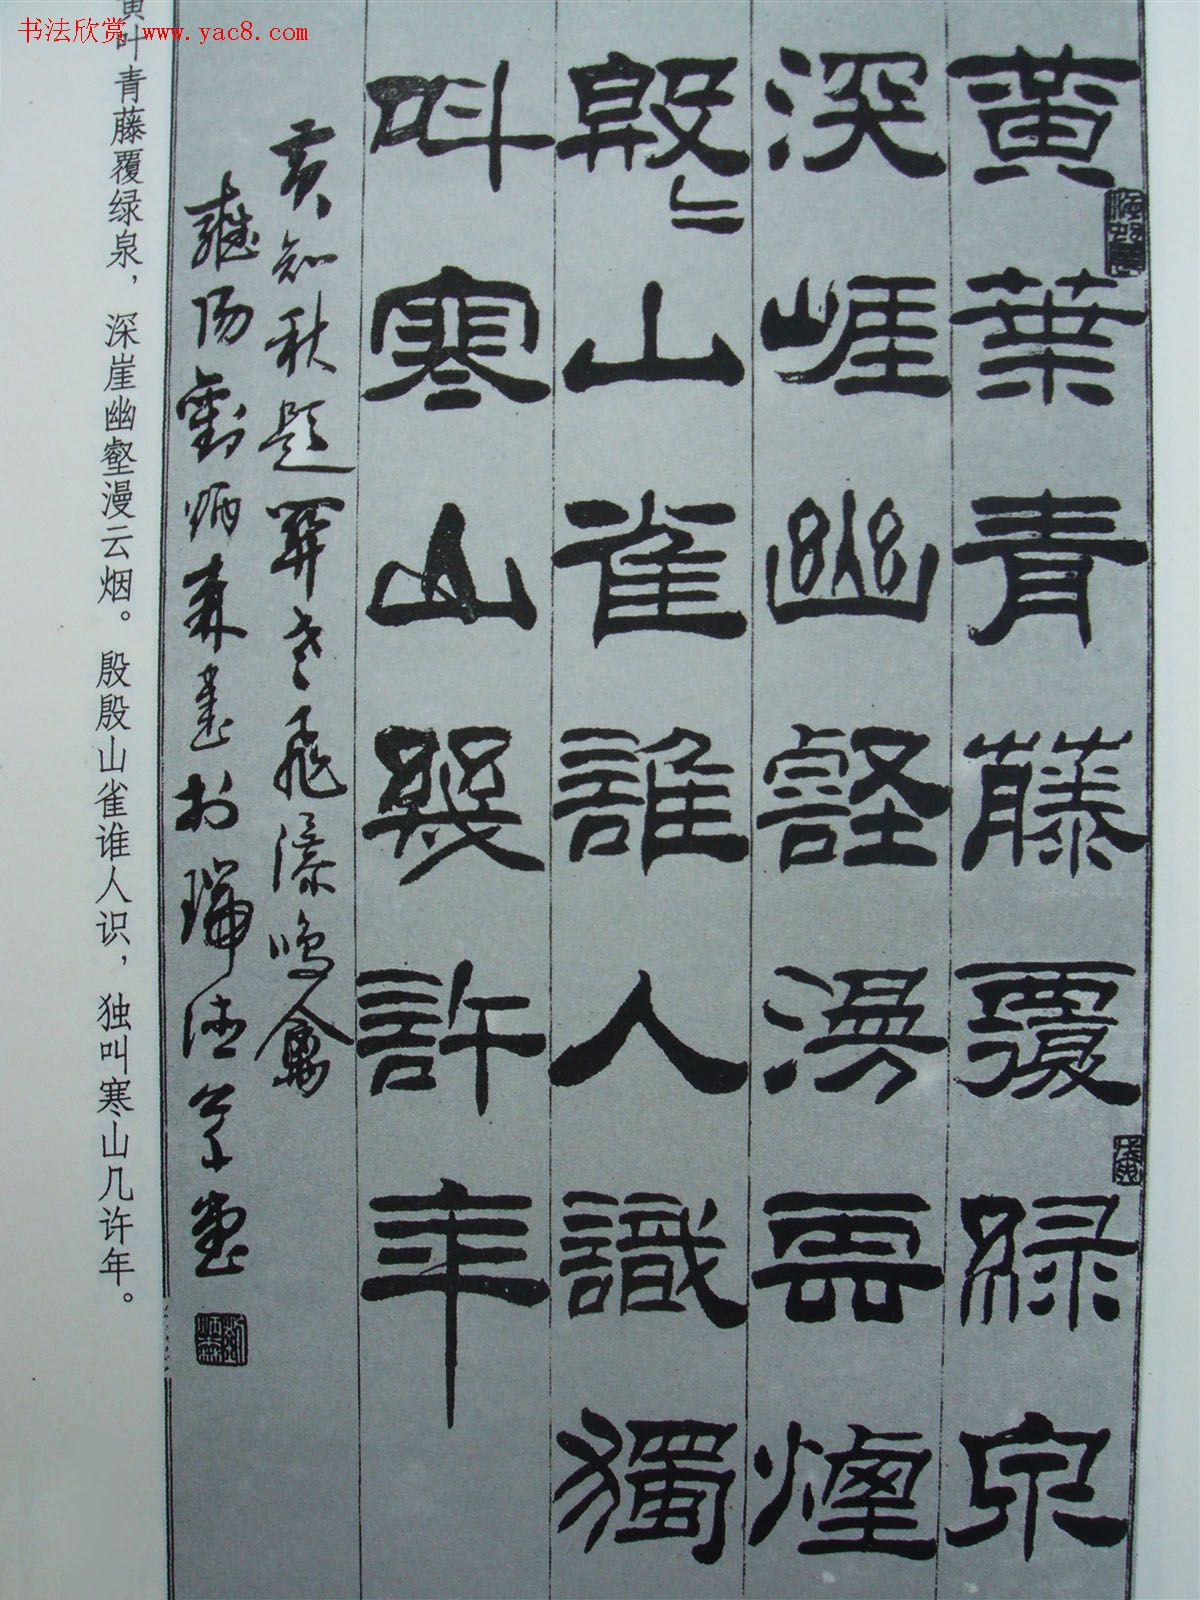 书法欣赏 www.yac8.com
黃葉青藤覆綠泉
深崕幽壑漫雲煙
殷〻山雀誰人識獨
叫寒山幾許年
黄知秋题关老飞瀑鸣禽
刘炳森书于
黄叶青藤覆绿泉，深崖幽壑漫云烟。殷殷山雀谁人识，独叫寒山几许年。